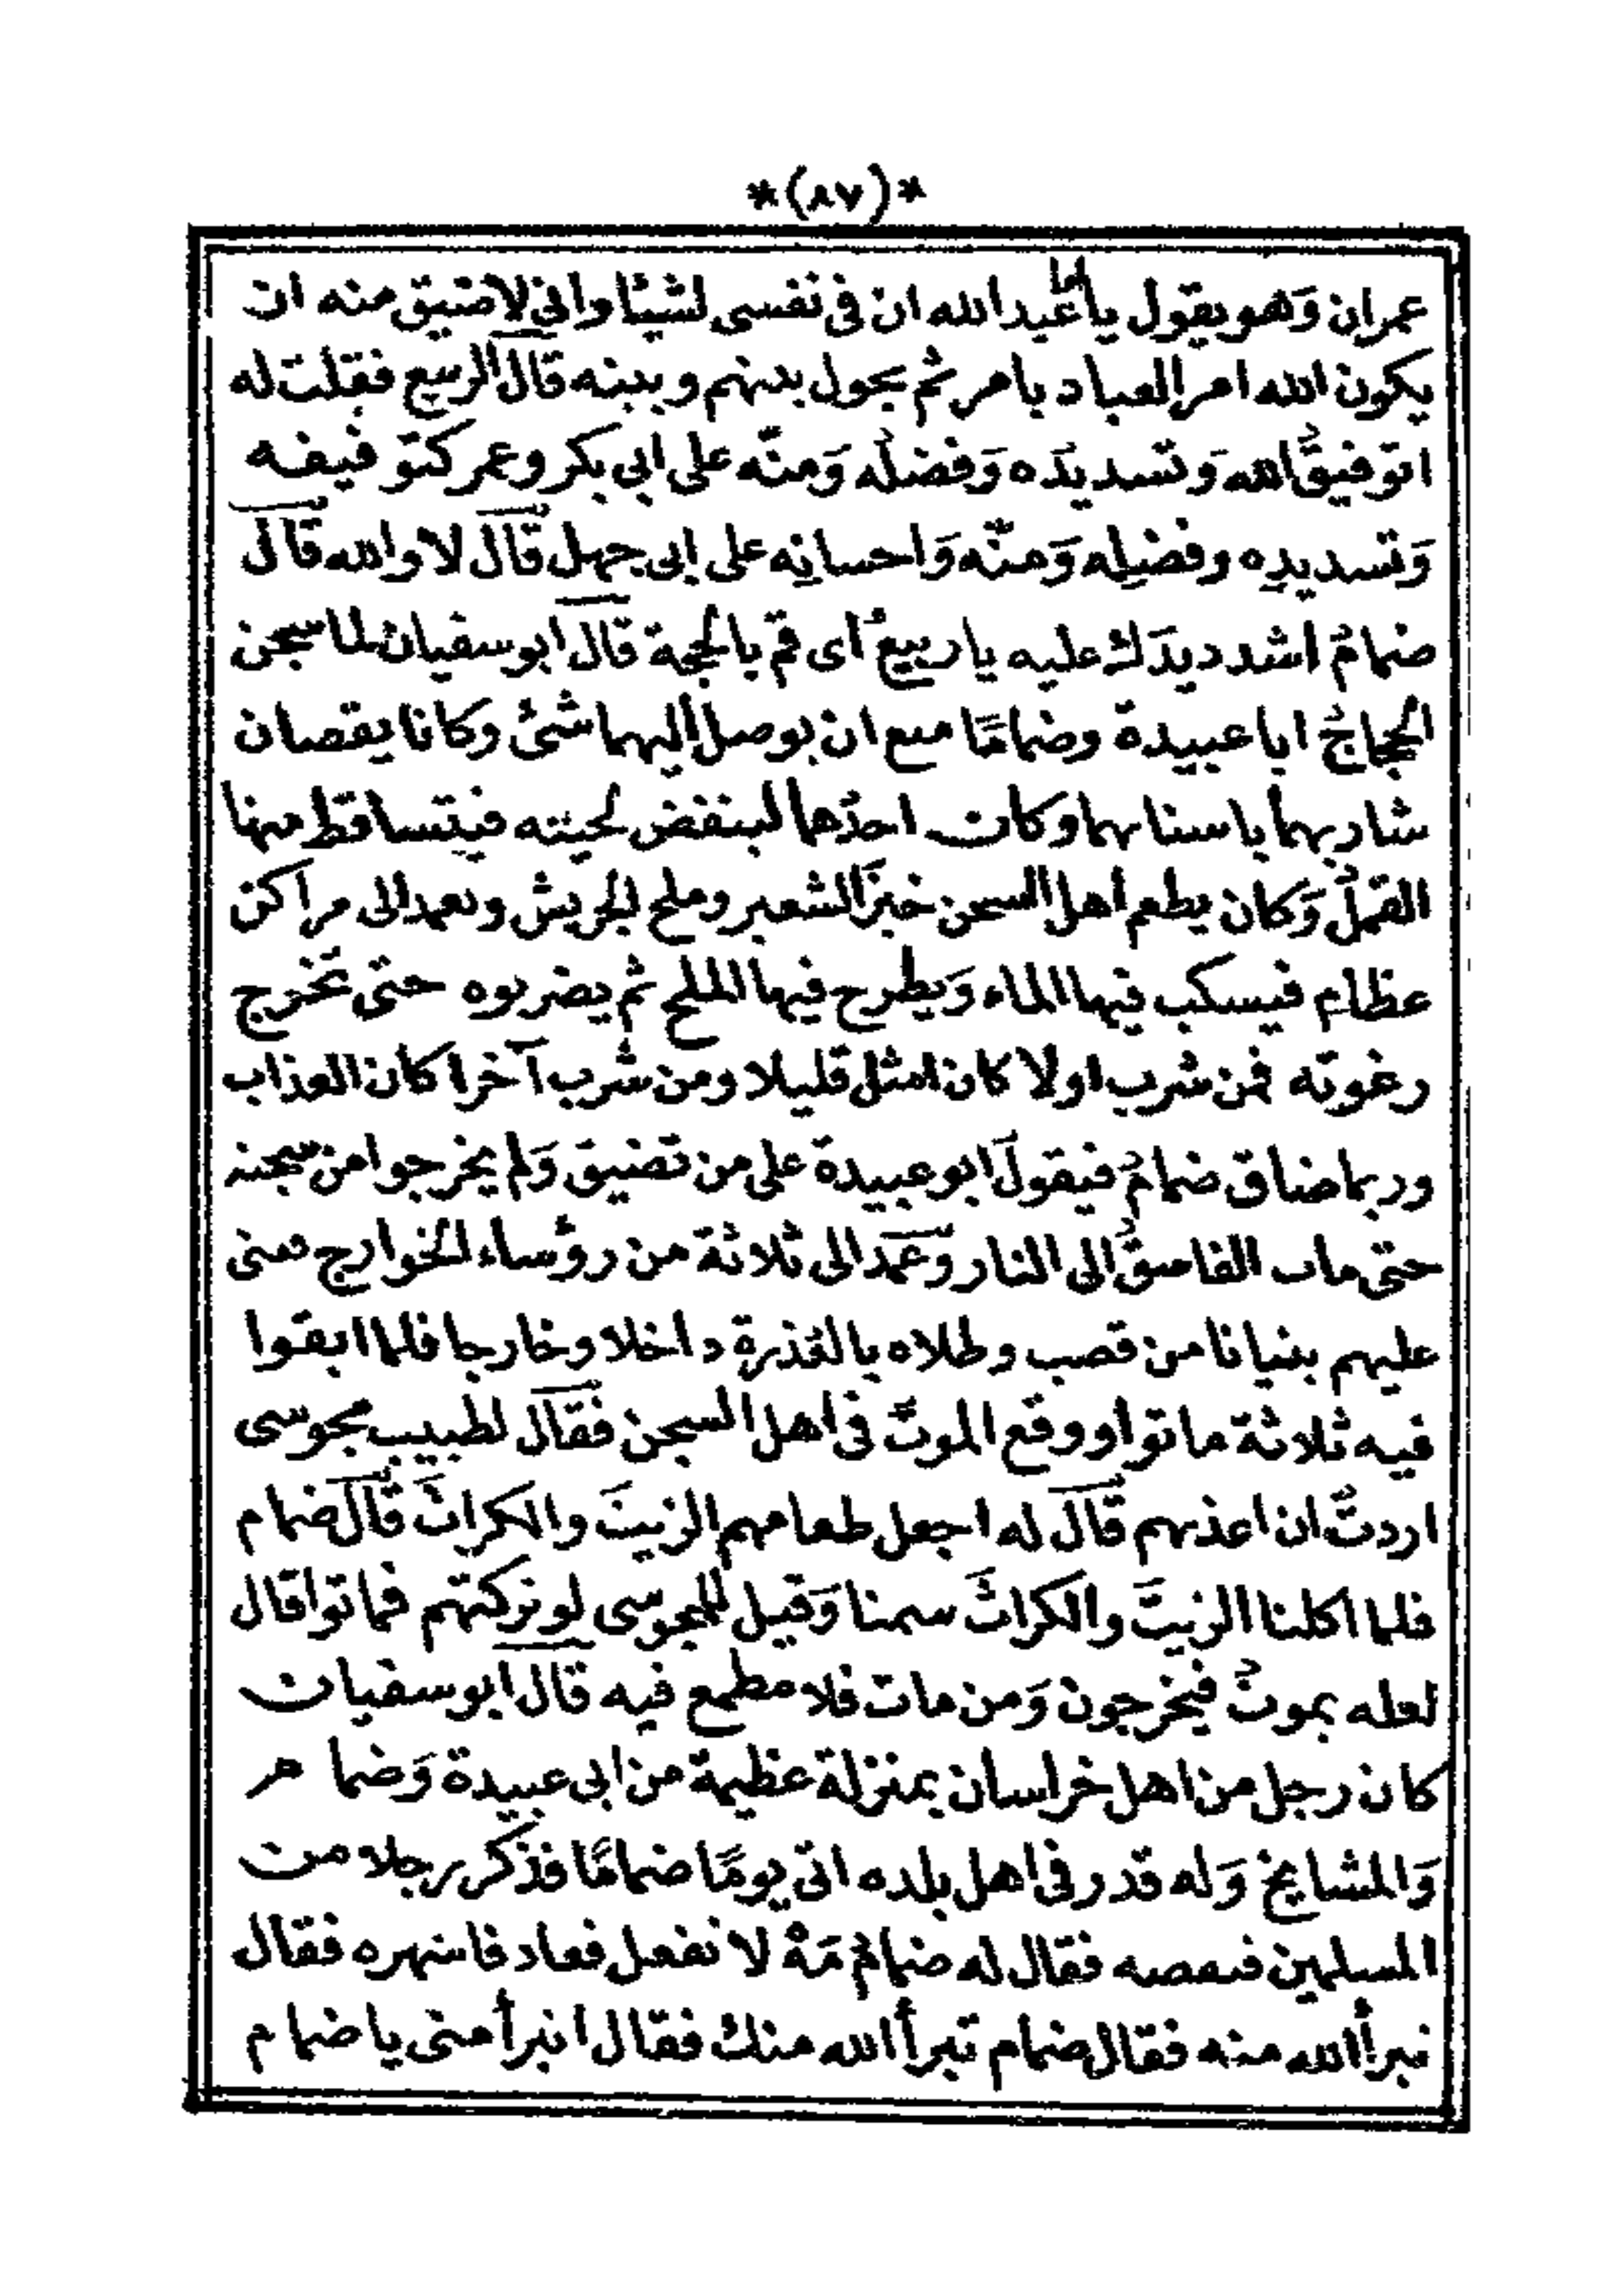 *(٨٧)*
عمران وَهو يقول يا أبا عبد الله ان فى نفسى لشيئا وانى لاضيق منه ان
يكون الله امر العباد بامر ثم يحول بينهم وبينه قال الربيع فقلت له
اتوفيقُ الله وَتسديدَه وَفضلُه وَمنّه على ابى بكر وعمر كتوفيفه
وَتسديدِه وفضلِه وَمنّه وَاحسانِه على ابى جهل قال لا والله قال
ضمامُ اشدد يدَك عليه يا ربيعُ اى قم بالحجة قال ابو سفيان لما سجن
الحجاجُ ابا عبيدة وضمامًا منع ان يوصل اليهما شئ وكانا يقصان
شاربهما باسنانهما وكان احدُهما لينفض لحيته فيتساقط منها
القملُ وَكان يطعم اهل السجن خبزَ الشعير وملح الجريش ويعمد الى مراكن
عظام فيسكب فيها الماء وَيطرح فيها الملح ثم يضربوه حتى تخرج
رغوته فمن شرب اولا كان امثل قليلا ومن شرب آخرا كان العذاب
وربما ضاق ضمامُ فيقولَ ابو عبيدة على من تضيق وَلم يخرجوا من سجنه
حتى مات الفاسقُ الى النار وَعَمد الى ثلاثة من رؤساء الخوارج فبنى
عليهم بنيانا من قصب وطلاه بالعذرة داخلا وخارجا فلما ابقوا
فيه ثلاثة ماتوا ووقع الموتُ فى اهل السجن فقال لطبيب مجوسى
اردتُ ان اعذبهم قال له اجعل طعامهم الزيتَ والكراثَ قال ضمام
فلما اكلنا الزيتَ والكراثَ سمنا وَقيل للمجوسى لو تركتهم فماتوا قال
لعله يموتُ فيخرجون وَمن مات فلا مطمع فيه قال ابو سفيان
كان رجل من اهل خراسان بمنزلة عظيمة من ابى عبيدة وَضمام
وَالمشايخ وَله قدر فى اهل بلده اتى يومًا ضمامًا فذكر رجلا من
المسلمين فنقصه فقال له ضمامُ مَهْ لا تفعل فعاد فانتهره فقال
تبرأ الله منه فقال ضمام تبرأ الله منك فقال اتبرأ منى يا ضمام